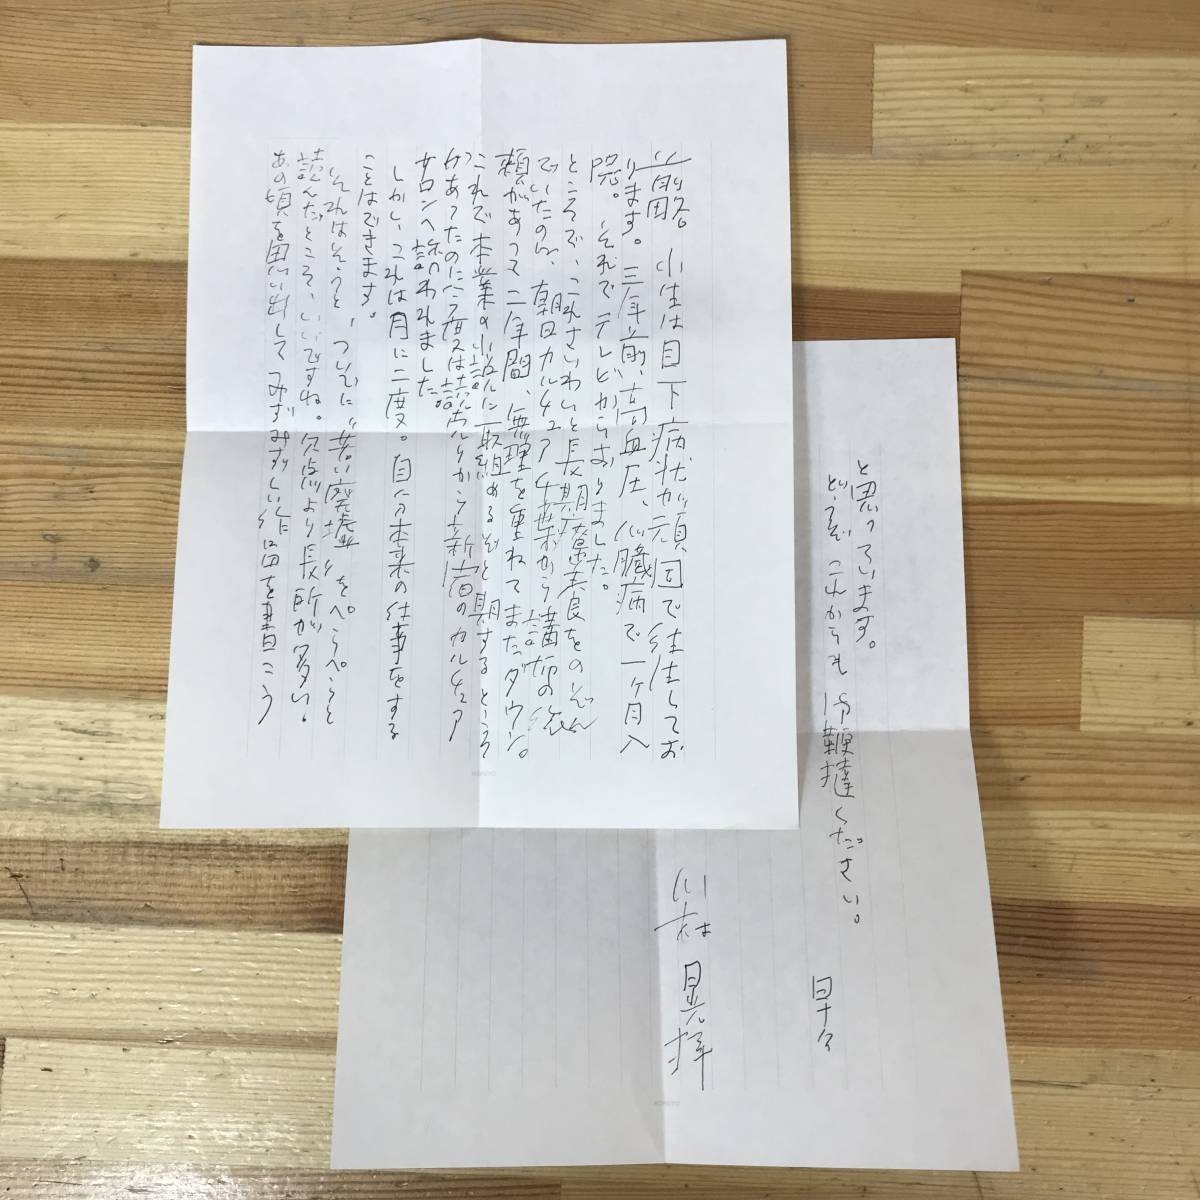 前略 小生は目下病状が頑固で往生してお
ります。三年前、高血圧、心臓病で一ヶ月入
院。それでテレビからおりました。
ところで、これさいわいと長期療養をのぞん
でいたのに、朝日カルチュア千葉から講師の依
頼があって二年間、無理を重ねてまたダウン。
これで本業の小説に取組めるぞと期するところ
があったのに今度は読売から新宿のカルチュア
サロンへ誘われました。
しかし、これは月に二度。自分本来の仕事をする
ことはできます。
それはそうと、ついに〝若い廃墟〟をペらぺらと
読んだところ、いいですね。欠点より長所が多い。
あの頃を思い出してみずみずしい作品を書こう
と思っています。
どうぞこれからも御鞭撻ください。
早々
川村晃拝